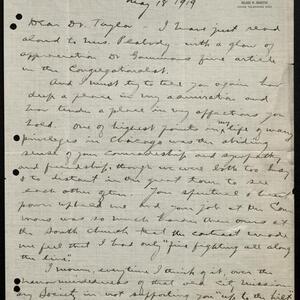 May 18 1919
Dear Dr. Taylor: I have just read
aloud to Mrs. Peabody with a glow of
appreciation Dr Gammons fine article
in the Congregationalist.
And I must try to tell you again how
deep a place in my admiration and
how tender a place in my affections you
hold. One of highest points in my life of many
privileges in Chicago was the abiding
sense of your comradeship and sympathy
and friendship, though we were both too busy
& to distant in our great town to see
each other often. Your spiritual
power upheld me and your job at the Com
mons was so much harder than ours at
the South church that the contrast made
me feel that I had only "fine fighting all along
the line"
I mourn, every time I think of it, over the
of that old City Mission
ary Society in not supporting you "up to the hilt"